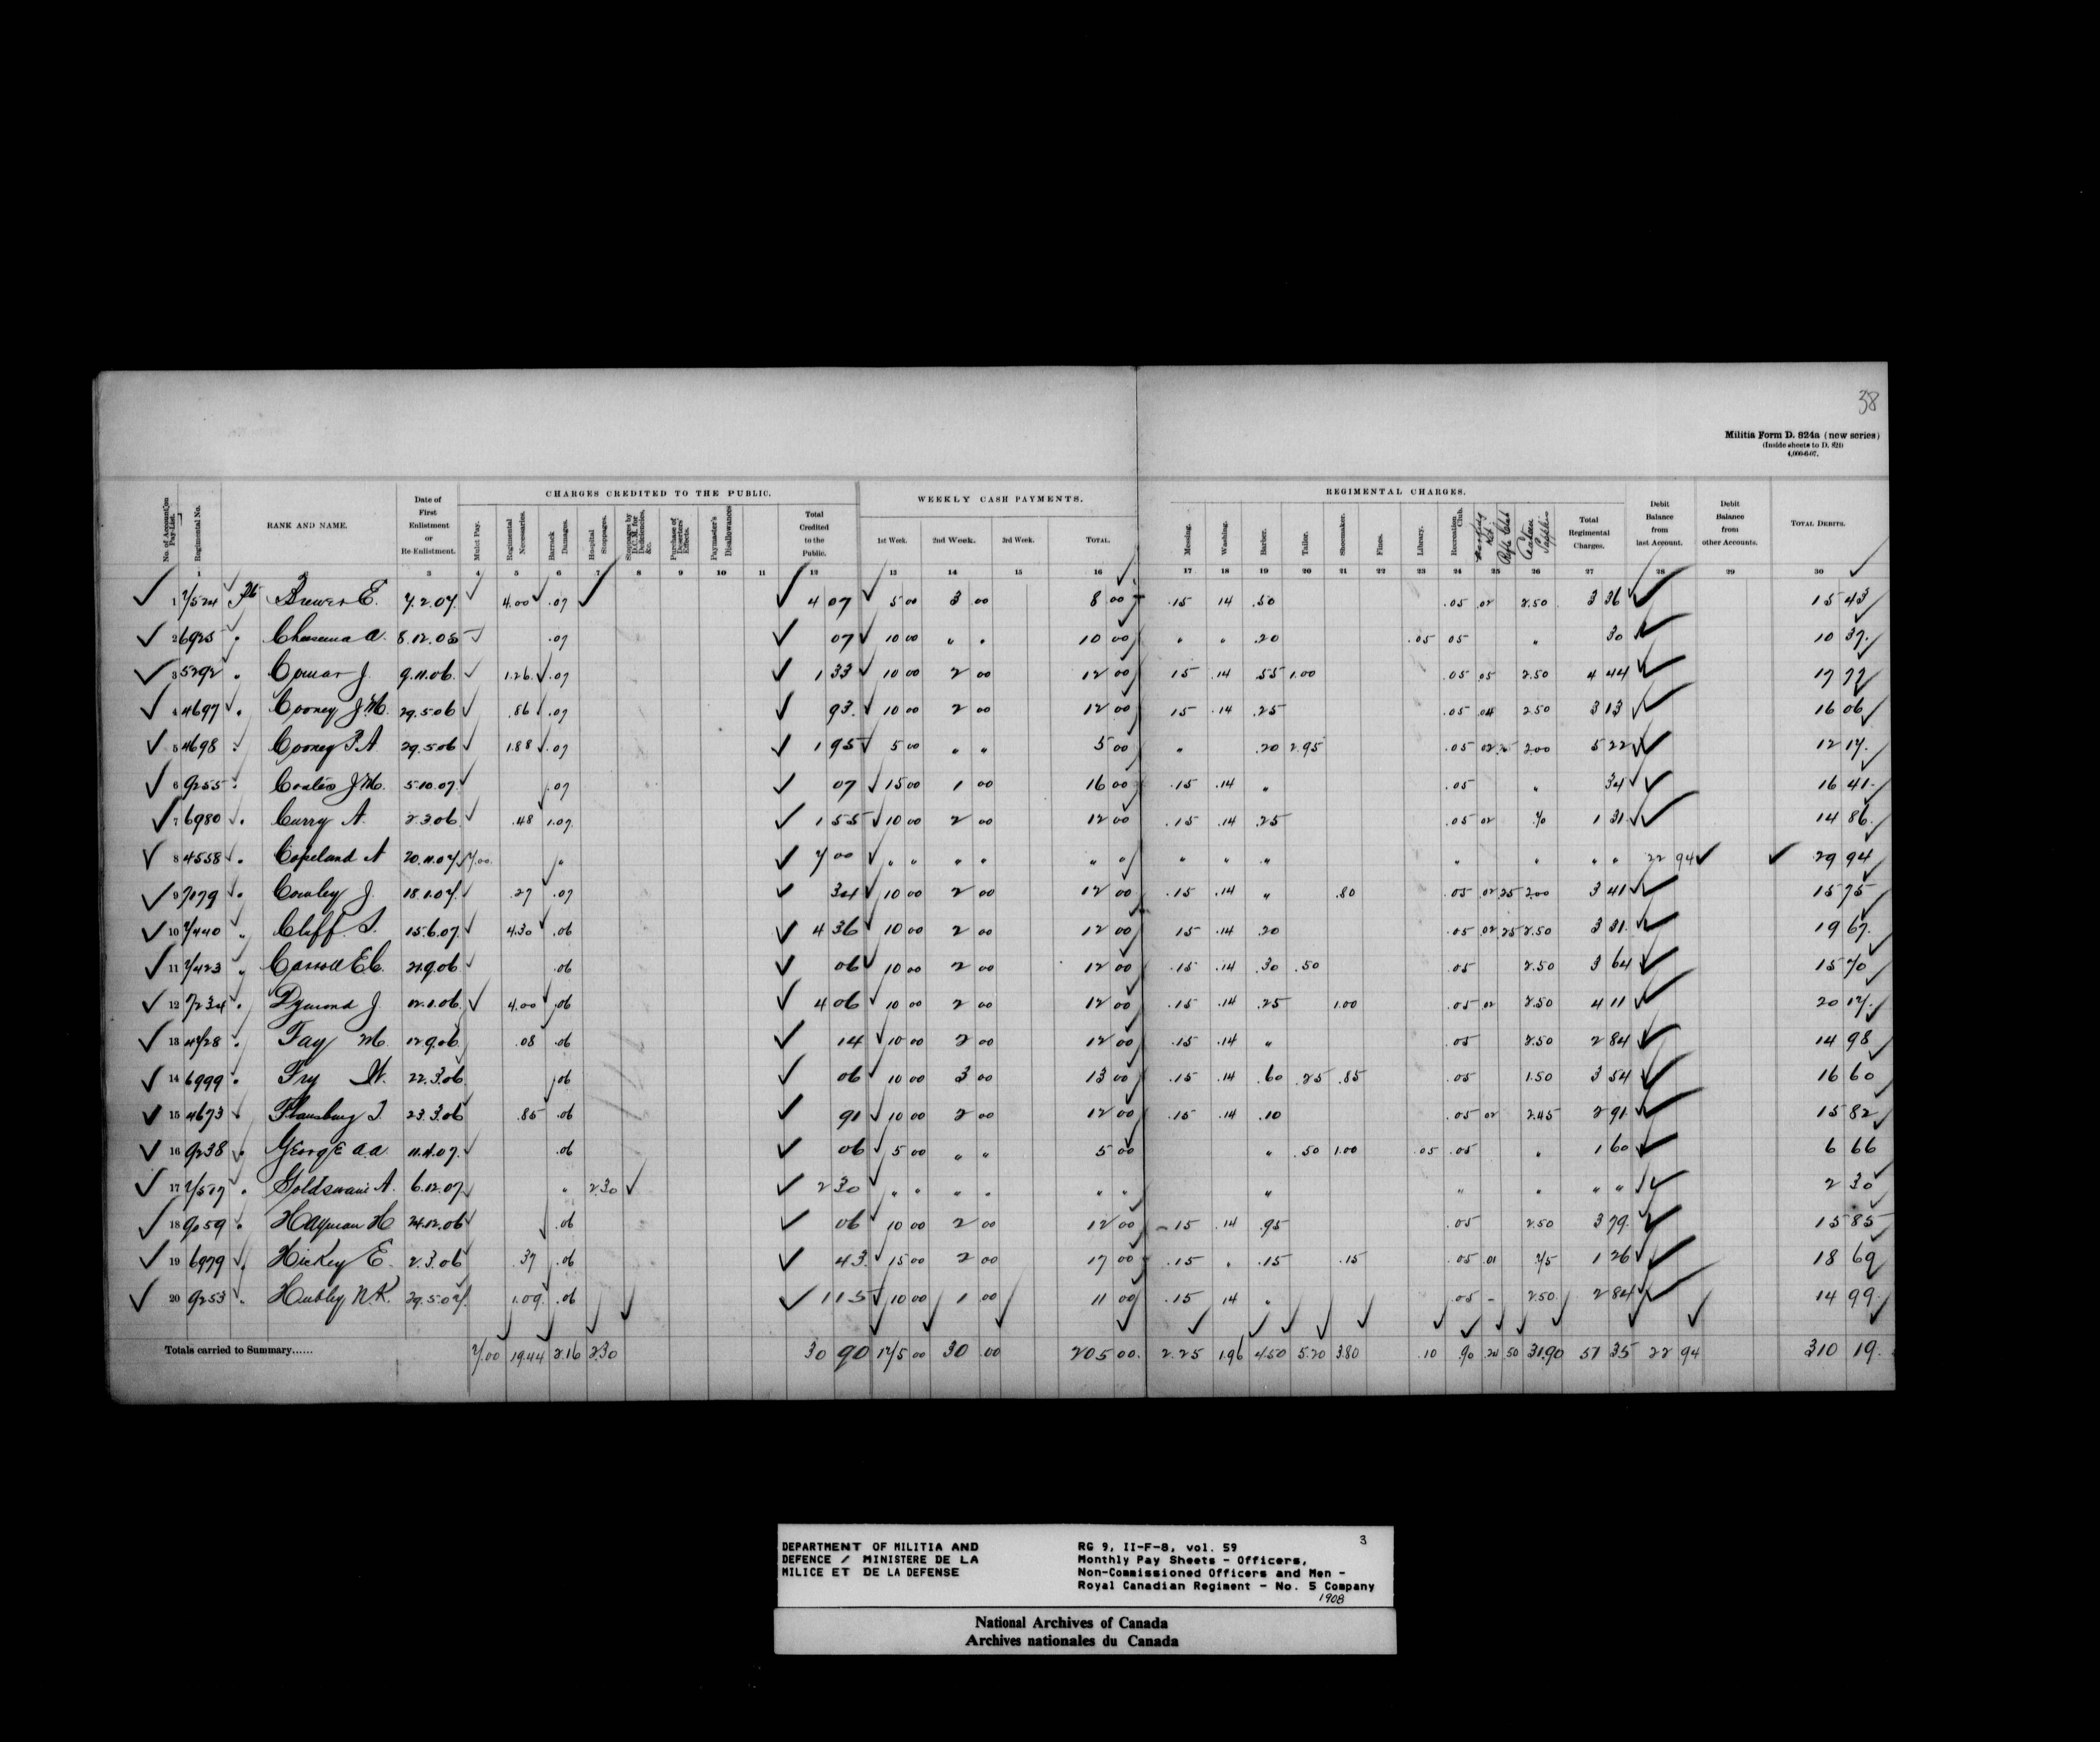 38
Militia Form D. 824a (new series)
(Inside sheets to D. 824)
4,000-6-07.
CHARGES CREDITED TO THE PUBLIC. WEEKLY CASH PAYMENTS. REGIMENTAL CHARGES.
No. of Account on Pay-List. Regimental No. RANK AND NAME. Date of First Enlistment or Re-Enlistment. Mulct Pay. Regimental Necessaries. Barrack Damages. Hospital Stoppages. Stoppages by D.C.M. for Deficiencies, &c. Purchase of Deserters' Effects. Paymaster's Disallowances Total Credited to the Public. 1st Week. 2nd Week. 3rd Week. TOTAL. Messing. Washing. Barber. Tailor. Shoemaker. Fines. Library. Recreation Club. Rifle Club Canteen Supplies Total Regimental Charges. Debit Balance from last Account. Debit Balance from other Accounts. TOTAL DEBITS.
1 3 4 5 6 7 8 9 10 11 12 13 14 15 16 17 18 19 20 21 22 23 24 25 26 27 28 29 30
1 7524 Pte Brewer E. 7.2.07. 4.00 .07 4 07 5 00 3 00 8 00 .15 14 .50 .05 .02 2.50 3 36 15 43
2 6925 " 8.12.05 .07 07 10 00 " " 10 00 " " .20 .05 05 " 30 10 37.
3 5292 " J. 9.11.06. 1.26. .07 1 33 10 00 2 00 12 00 15 .14 .55 1.00 .05 05 2.50 4 44 17 77
4 4697 " Cooney J.M. 29.5.06 .86 .07 93. 10 00 2 00 12 00 15 .14 .25 .05 .04 2.50 3 13 16 06
5 4698 " Cooney P.A 29.5.06 1.88 .07 1 95 5 00 " " 5 00 " .20 2.95 .05 02 2.00 5 22 12 17.
6 9255 " Coates J.M. 5.10.07. .07 07 15 00 1 00 16 00 .15 .14 " .05 " 34 16 41.
7 6980 " Curry A. 2.3.06. .48 1.07 1 55 10 00 2 00 12 00 .15 .14 .25 .05 02 .70 1 31. 14 86.
8 4558 " Copeland A 20.11.07 7.00. " 7 00 " " " " " " " " " " " " 22 94 29 94
9 7079 " Cowley J. 18.1.07. .27 .07 34 10 00 2 00 12 00 .15 .14 " .80 .05 02 25 2.00 3 41 15 75
10 7440 " Cliff S. 15.6.07. 4.30 .06 4 36 10 00 2 00 12 00 15 .14 .20 .05 .02 25 2.50 3 31. 19 67.
11 7423 " Carroll E.C. 21.9.06 .06 06 10 00 2 00 12 00 .15 .14 .30 .50 .05 2.50 3 64 15 70
12 7234 " Dymond J. 12.1.06. 4.00 .06 4 06 10 00 2 00 12 00 .15 .14 .25 1.00 .05 02 2.50 4 11 20 17.
13 4728 " Fay M. 12.9.06. .08 .06 14 10 00 2 00 12 00 .15 .14 " .05 2.50 2 84 14 98
14 6999 " Fry W. 22.3.06. .06 06 10 00 3 00 13 00 .15 .14 .60 .25 .85 .05 1.50 3 54 16 60
15 4673 " 23.3.06 .85 .06 91 10 00 2 00 12 00 .15 .14 .10 .05 02 2.45 2 91. 15 82
16 9238 " George A.A. 11.4.07. .06 06 5 00 " " 5 00 " .50 1.00 .05 .05 " 1 60 6 66
17 7577 " A. 6.12.07. " 2.30 2 30 " " " " " " " " " " " 2 30
18 9059 " Hayman H 24.12.06 .06 06 10 00 2 00 12 00 .15 .14 .95 .05 2.50 3 79. 15 85
19 6979 " Hickey E. 2.3.06 .37 .06 43. 15 00 2 00 17 00 .15 " .15 .15 .05 .01 .75 1 26 18 69
20 9253 " Hubley N.K. 29.5.07. 1.09. .06 1 15 10 00 1 00 11 00 .15 14 " .05 - 2.50. 2 84 14 99.
Totals carried to Summary...... 7.00 19.44 2.16 2.30 30 90 175 00 30 00 205 00. 2.25 1.96 4.50 5.20 3.80 .10 .90 .50 31.90 51 35 22 94 310 19.
3
DEPARTMENT OF MILITIA AND
DEFENCE / MINISTERE DE LA
MILICE ET DE LA DEFENSE
RG 9, II-F-8, vol. 59
Monthly Pay Sheets - Officers,
Non-Commissioned Officers and Men -
Royal Canadian Regiment - No. 5 Company
1908
National Archives of Canada
Archives nationales du Canada